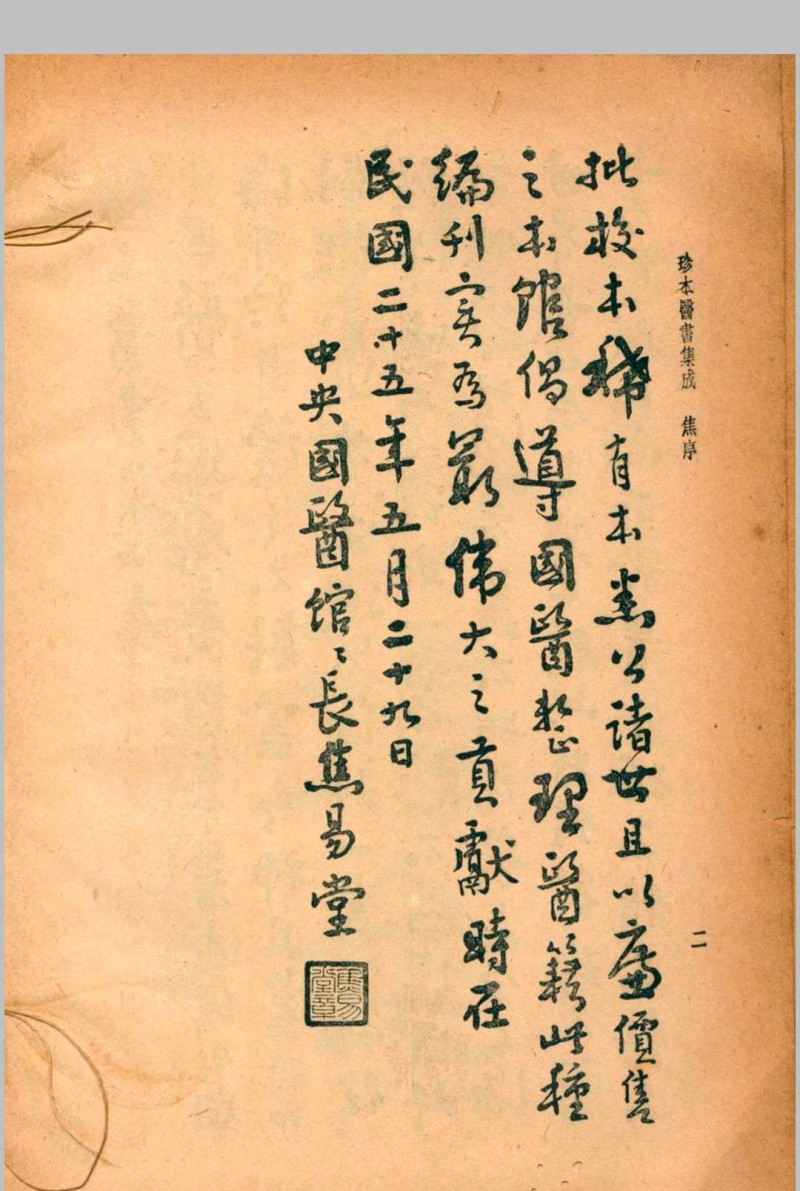 珍本醫書集成 焦序
二
批校本稀有本悉公諸世且以廉價售
之本館倡導國醫整理醫籍此種
編刊实為最偉大之貢獻時在
民國二十五年五月二十九日
中央國醫館々長焦易堂
焦易堂章